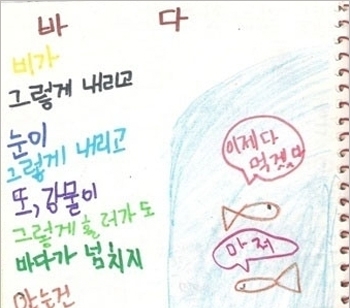 바 다
비가
그렇게 내리고
눈이
그렇게 내리고
또, 강물이
그렇게 흘러가도
바다가 넘치지
않는건
이제 다
먹겠다
마저